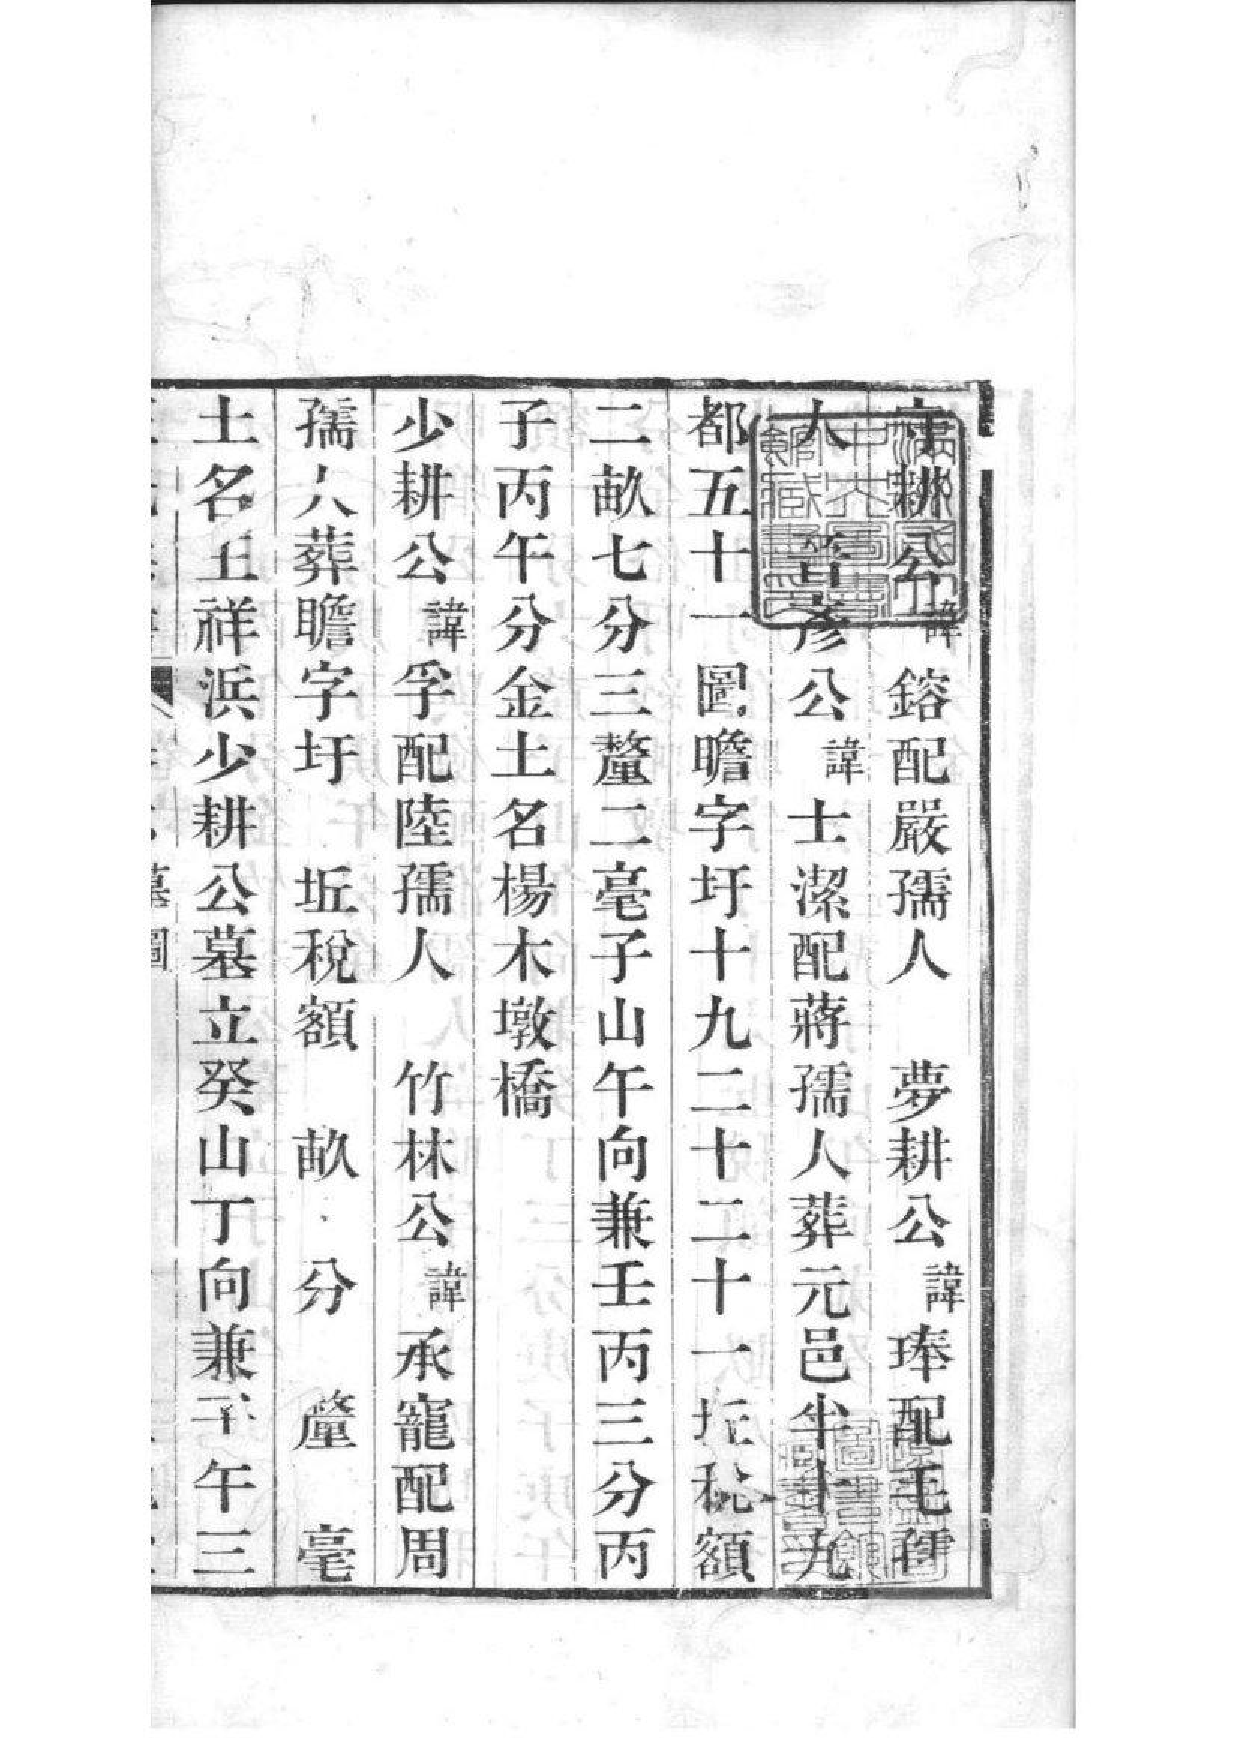 守耕公諱鎔配嚴孺人　夢耕公諱琫配毛孺
人　晋彥公諱士潔配蔣孺人葬元邑半十九
都五十一圖瞻字圩十九二十二十一坵稅額
二畝七分三釐二毫子山午向兼壬丙三分丙
子丙午分金土名楊木墩橋
少耕公諱孚配陸孺人　竹林公諱承寵配周
孺人葬瞻字圩　坵稅額　畝　分　釐　毫
土名王祥浜少耕公墓立癸山丁向兼子午三
墓圖